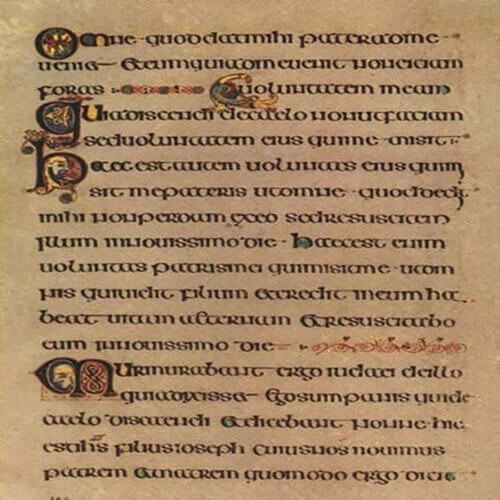 Omne quod dat mihi pater ad me
ueniet et eum qui ad me uenit non eiciam
foras uoluntatem meam
Quia discendi de caelo non ut faciam
sed uoluntatem eius qui me misit
Haec est autem uoluntas eius qui mi
sit me patris ut omne quod dedit
mihi non perdam ex eo sed resuscitem
illum in nouissimo die haec est enim
uoluntas patris mei qui misit me ut om
nis qui uidit filium et credit in eum ha
beat uitam aeternam et resuscitabo
eum in nouissimo die
Murmurabant ergo iudaei de illo
quia dixisset ego sum panis qui de
caelo discendi et dicebant nonne hic
est filius ioseph cuius nos nouimus
patrem et matrem quomodo ergo dicit